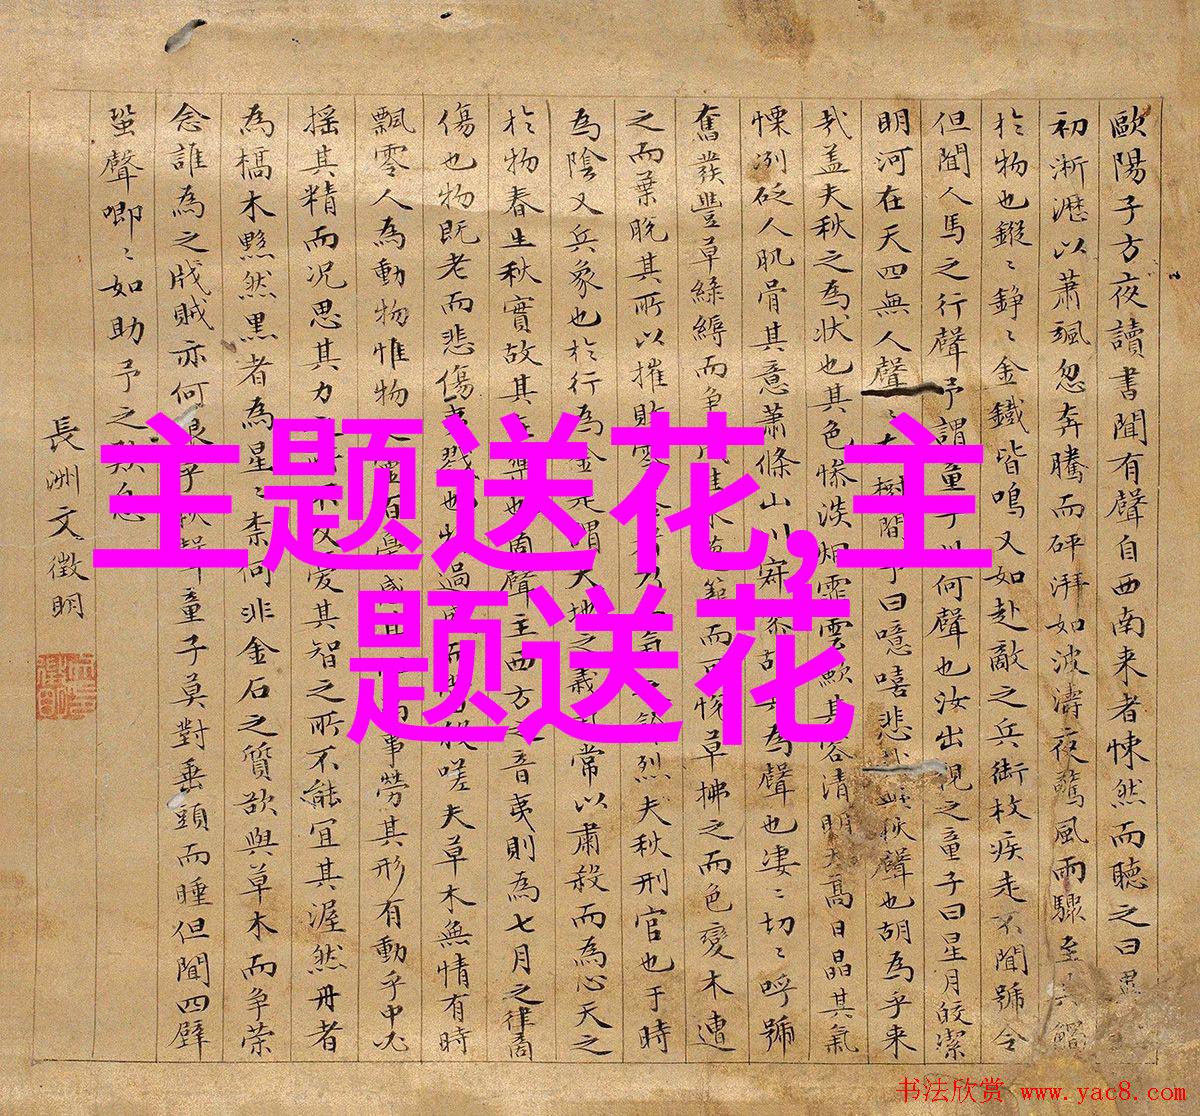 歐陽子方夜讀書聞有聲自西南来者悚然而聽之曰異
初淅瀝以蕭颯忽奔騰而砰湃如波濤夜驚風雨驟至其觸
於物也鏦〻錚〻金鐵皆鳴又如赴敵之兵銜枚疾走不聞號令
但聞人馬之行聲予謂童子何聲也汝出視之童子曰星月皎潔
明河在天四無人聲〻在樹間予曰噫嘻悲哉此秋聲也胡為乎来
哉盖夫秋之為状也其色惨淡烟霏雲歛其容清明天高日晶其氣
慄冽砭人肌骨其意蕭條山川寂寥故其為聲也凄〻切〻呼號
奮發豐草綠縟而争茂佳木葱而可悅草拂之而色變木遭
之而葉脫其所以摧敗零落者乃氣餘烈夫秋刑官也于時
為陰又兵象也於行為金是謂天地之義氣常以肅殺而為心天之
於物春生秋實故其在樂也商聲主西方之音夷則為七月之律商
傷也物既老而悲傷夷戮也物過盛而當殺嗟夫草木無情有時
飄零人為動物惟物靈百憂感其萬事勞其形有動乎中必
摇其精而况思其力之所不及憂其智之所不能宜其渥然丹者
為槁木黟然黒者為星〻柰何非金石之質欲與草木而争荣
念誰為之戕賊亦何恨乎秋聲童子莫對垂頭而睡但聞四壁
蛩聲唧〻如助予之歎息
長洲文徵明
主题送花,主
题送花
书法欣赏 www.yac8.com